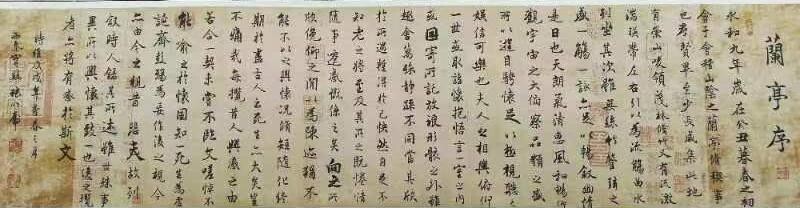 蘭亭序
永和九年歲在癸丑暮春之初
會于會稽山陰之蘭亭脩稧事
也群賢畢至少長咸集此地
有崇山峻領茂林脩竹又有清流激
湍暎帶左右引以為流觴曲水
列坐其次雖無絲竹管絃之
盛一觴一詠亦足以暢敘幽情
是日也天朗氣清惠風和暢仰
觀宇宙之大俯察品類之盛
所以遊目騁懷足以極視聽之
娛信可樂也夫人之相與俯仰
一世或取諸懷抱悟言一室之內
或因寄所託放浪形骸之外雖
趣舍萬殊靜躁不同當其欣
於所遇暫得於己快然自足不
知老之將至及其所之既惓情
隨事遷感慨係之矣向之所
欣俛仰之間以為陳迹猶不
能不以之興懷況脩短隨化終
期於盡古人云死生亦大矣豈
不痛哉每攬昔人興感之由
若合一契未嘗不臨文嗟悼不
能喻之於懷固知一死生為虛
誕齊彭殤為妄作後之視今
亦由今之視昔悲夫故列
敘時人錄其所述雖世殊事
異所以興懷其致一也後之攬
者亦將有感於斯文
時維戊戌年暮春之月